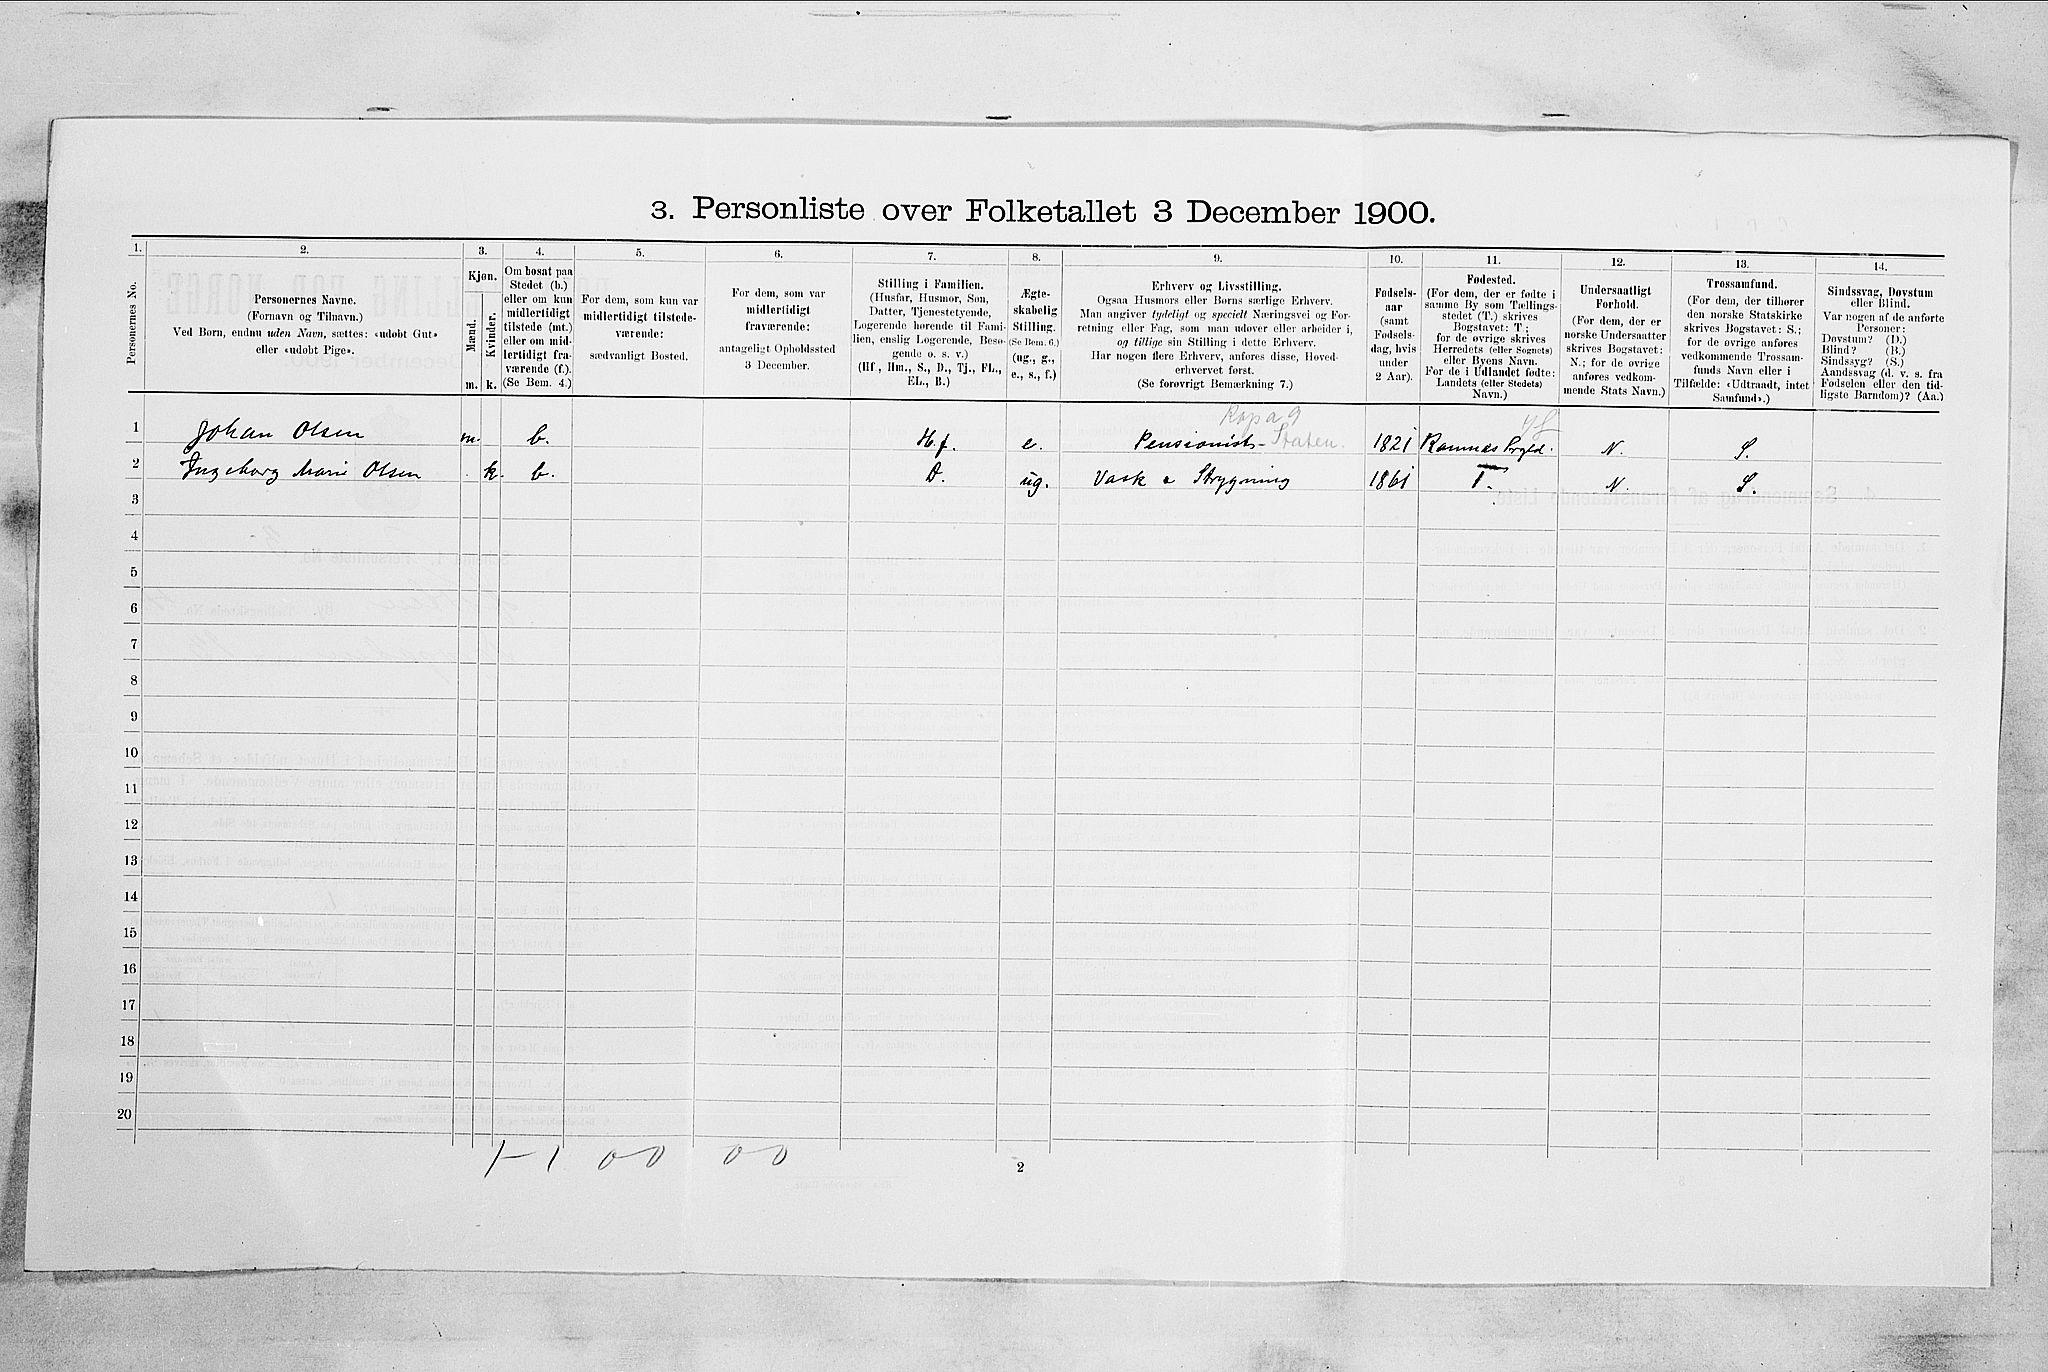 3. Personliste over Folketallet 3 December 1900.
1.
Personernes No.
2.
Personernes Navne.
(Fornavn og Tilnavn.)
Ved Børn, endnu uden Navn, sættes: «udøbt Gut»
eller «udøbt Pige».
3.
Kjøn.
Mænd.
Kvinder.
m.
k.
4.
Om bosat paa
Stedet (b.)
eller om kun
midlertidigt
tilstede (mt.)
eller om mid-
lertidigt fra-
værende (f.).
(Se Bem. 4.)
5.
For dem, som kun var
midlertidigt tilstede-
værende:
sædvanligt Bosted.
6.
For dem, som var
midlertidigt
fraværende:
antageligt Opholdssted
3 December.
7.
Stilling i Familien.
(Husfar, Husmor, Søn,
Datter, Tjenestetyende,
Logerende hørende til Fami-
lien, enslig Logerende, Besø-
gende o. s. v.)
(Hf, Hm., S., D., Tj., FL.,
EL., B.)
8.
Ægte-
skabelig
Stilling.
(Se Bem. 6.)
(ug., g.,
e., s., f.)
9.
Erhverv og Livsstilling.
Ogsaa Husmors eller Børns særlige Erhverv.
Man angiver tydeligt og specielt Næringsvei og For-
retning eller Fag, som man udøver eller arbeider i,
og tillige sin Stilling i dette Erhverv.
Har nogen flere Erhverv, anføres disse, Hoved-
erhvervet først.
(Se forøvrigt Bemærkning 7.)
10.
Fødsels-
aar
(samt
Fødsels-
dag, hvis
under
2 Aar).
11.
Fødested.
(For dem, der er fødte i
samme By som Tællings-
stedet (T.) skrives
Bogstavet: T;
for de øvrige skrives
Herredets (eller Sognets)
eller Byens Navn.
For de i Udlandet fødte:
Landets (eller Stedets)
Navn.)
12.
Undersaatligt
Forhold.
(For dem, der er
norske Undersaatter
skrives Bogstavet:
N.; for de øvrige
anføres vedkom-
mende Stats Navn.)
13.
Trossamfund.
(For dem, der tilhører
den norske Statskirke
skrives Bogstavet: S.;
for de øvrige anføres
vedkommende Trossam-
funds Navn eller i
Tilfælde: «Udtraadt, intet
Samfund».)
14.
Sindssvag, Døvstum
eller Blind.
Var nogen af de anførte
Personer:
Døvstum? (D.)
Blind? (B.)
Sindssyg? (S.)
Aandssvag (d. v. s. fra
Fødselen eller den tid-
ligste Barndom)? (Aa.)
1 Johan Olsen m. b. Hf. e. Pensionist - Staten. 1821 Ramnes Prgld. N. S.
2 Ingeborg Marie Olsen k. b. D. ug. Vask & Strygning 1861 T. N. S.
3
4
5
6
7
8
9
10
11
12
13
14
15
16
17
18
19
20
1 - 1 0 0 0 0
2